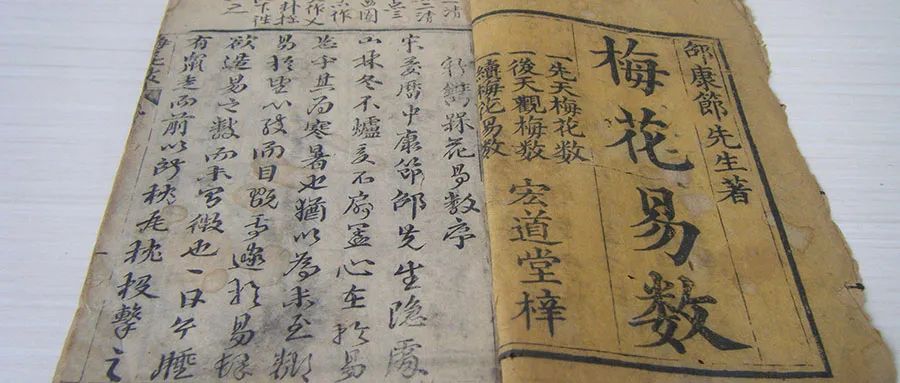 邵康節先生著
梅花易数
一先天梅花数
一後天觀梅数
一續梅花易数
宏道堂梓
新鐫槑花易数序
宋慶曆中康節邵先生隱處
山林冬不爐夏不扇盖心在於易
忘乎其為寒暑也猶以為未至糊
易於壁心致而目翫焉邃於易理
欲造易之数而未有徵也一日午睡
有鼠走而前以所枕瓦枕投擊之